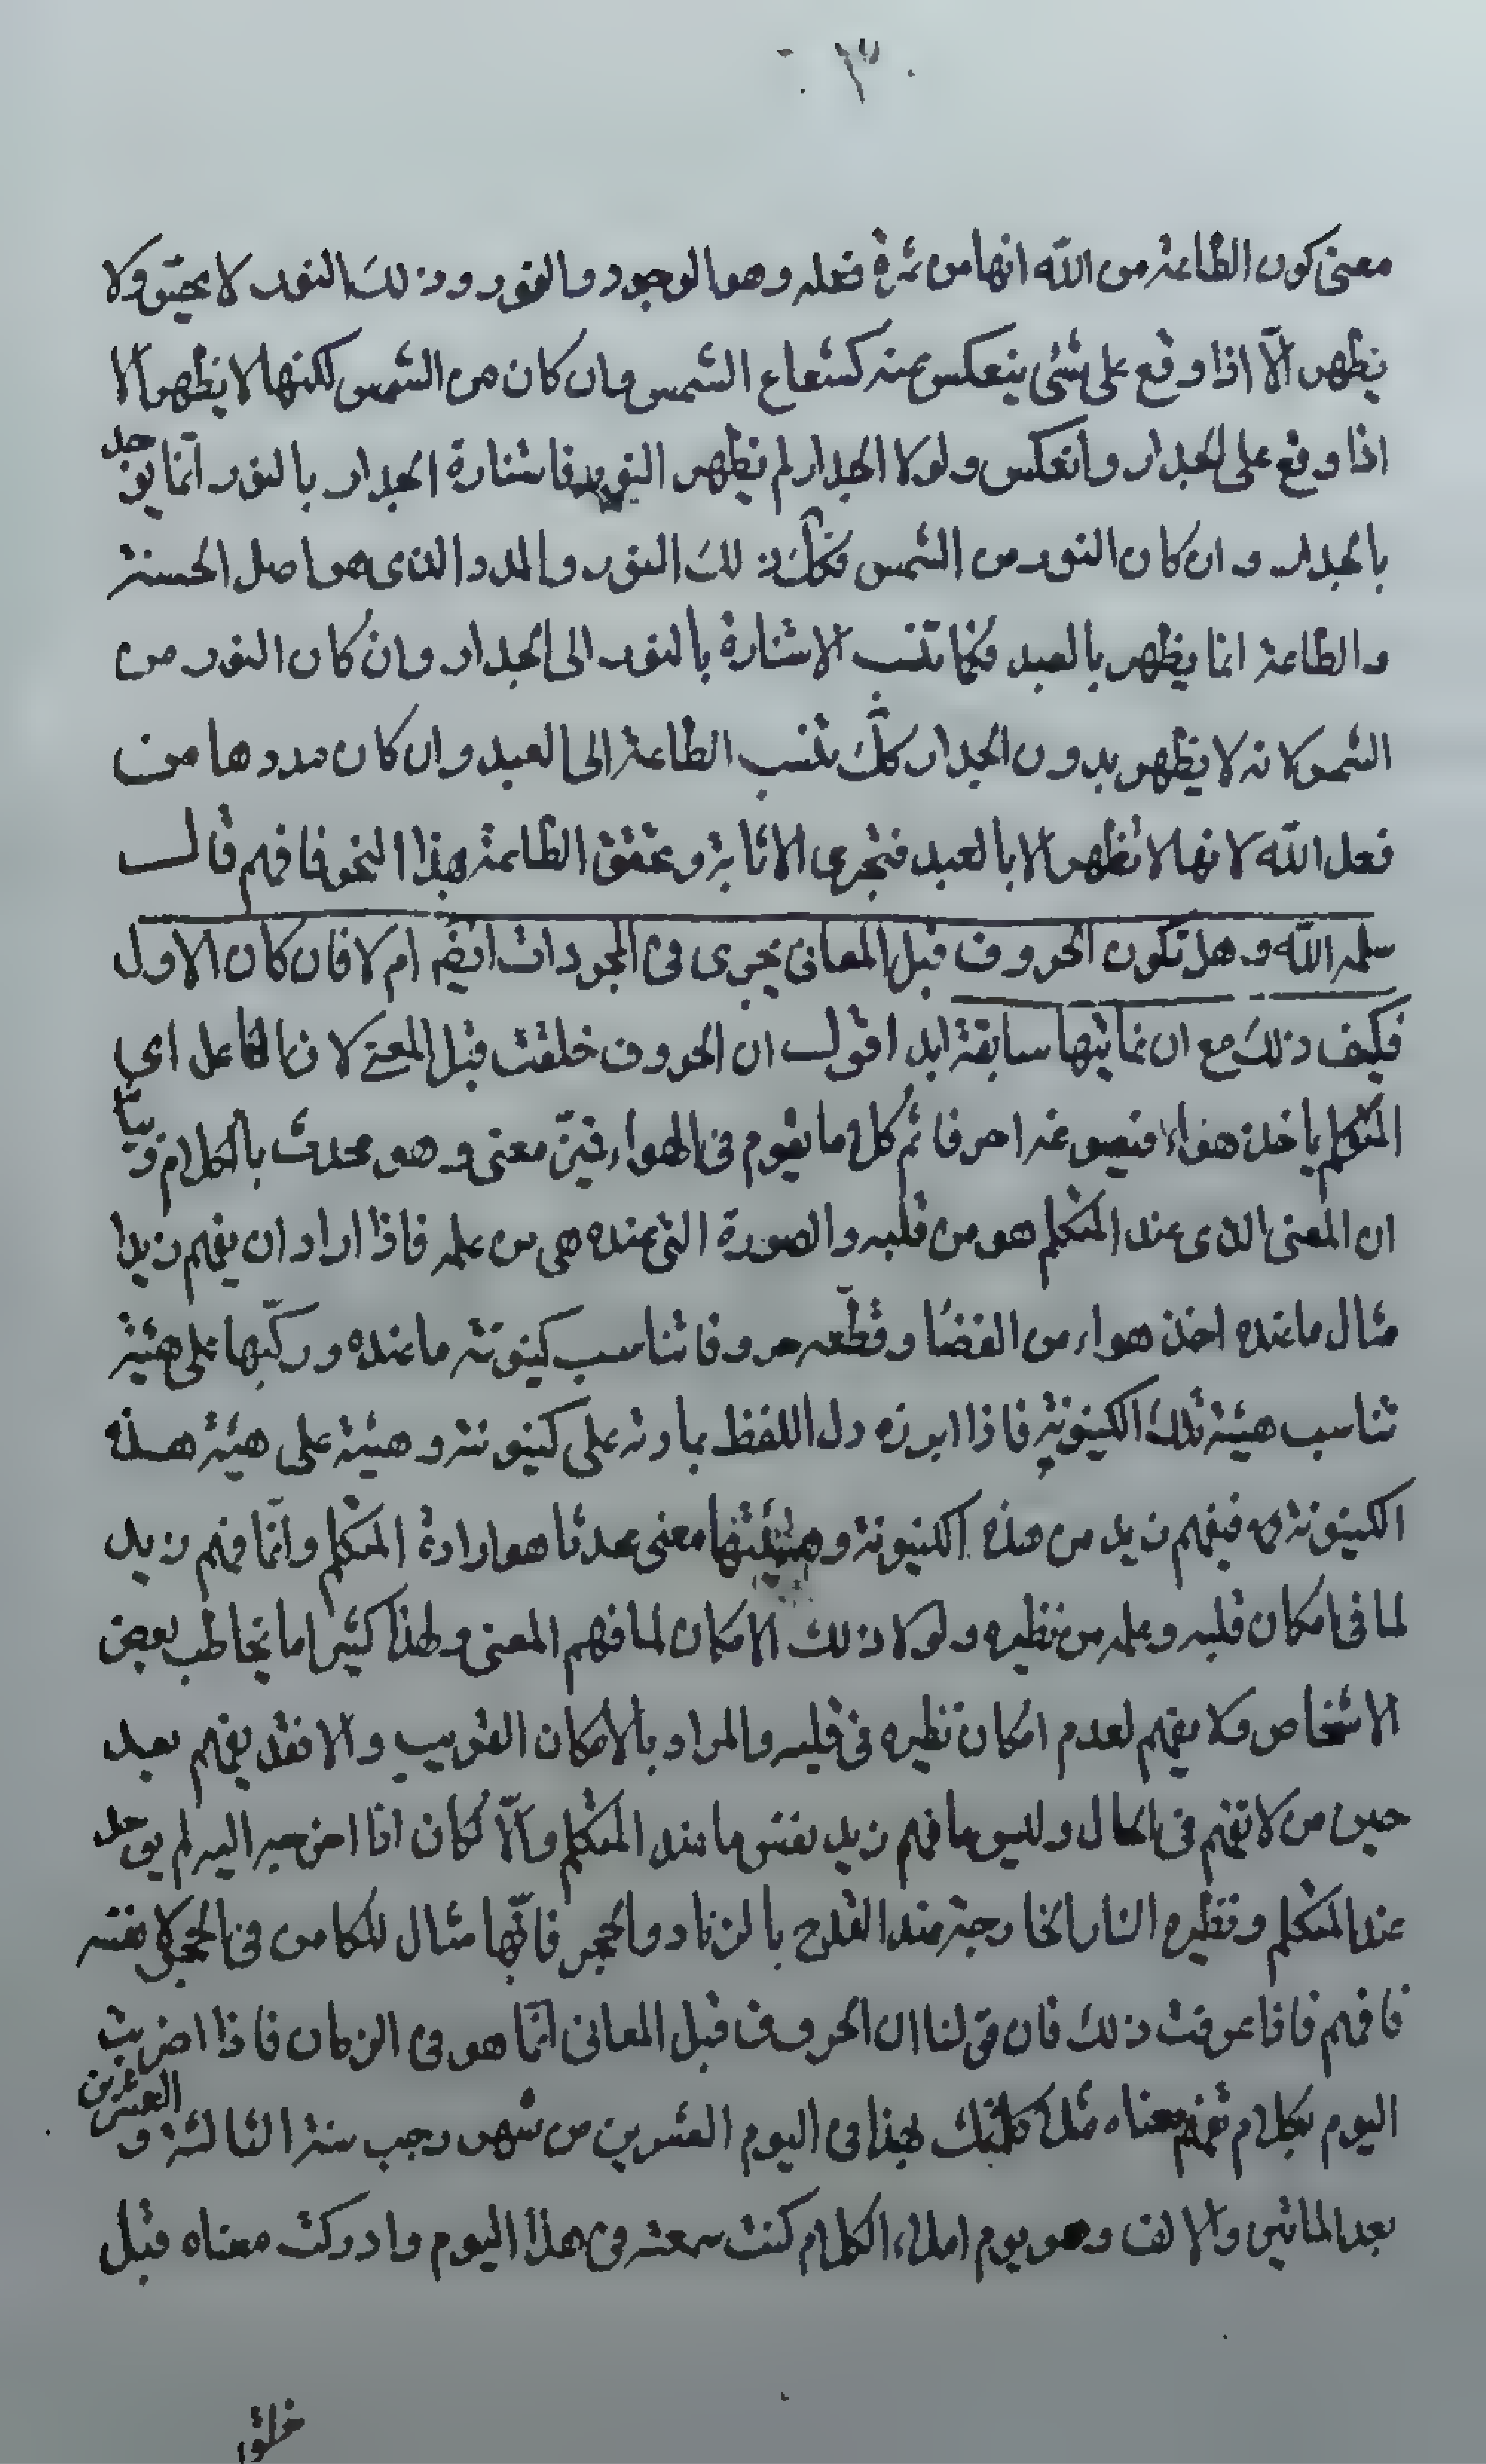 ٣٠
معنى كون الطاعة من الله انها من ثمرة فعله وهو الوجود والنور وذلك النور لا يحقق ولا
يظهر الّا اذا وقع على شئ ينعكس عنه كشعاع الشمس وان كان من الشمس لكنها لا يظهر الا
اذا وقع على الجدار وانعكس ولولا الجدار لم يظهر النور فاستنارة الجدار بالنور انّما يوجد
بالجدار وان كان النور من الشمس فكك ذلك النور والمدد الذى هو اصل الحسنة
والطاعة انما يظهر بالعبد فكما تنسب الاستنارة بالنور الى الجدار وان كان النور من
الشمس لانه لا يظهر بدون الجدار كك تنسب الطاعة الى العبد وان كان مددها من
فعل الله لانها لا تظهر الا بالعبد فتجرى الاثابة وتحقق الطاعة بهذا النحو فافهم قال
سلمه الله وهل تكون الحروف قبل المعانى يجرى فى المجردات ايضا ام لا فان كان الاول
فكيف ذلك مع ان نمايتها سابقة ابد اقول ان الحروف خلقت قبل المعنى لان الفاعل اى
المتكلم ياخذ هواء فيصوغه احرفا ثم كل ما يقوم فى الهواء فيتمّ معنى وهو محدث بالكلام وبيا
ان المعنى الذى عند المتكلم هو من قلبه والصورة التى عنده هى من علمه فاذا اراد ان يفهم زيدا
مثال ما عنده اخذ هواء من الفضا وقطّعه حروفا تناسب كينونة ما عنده وركّبها على هيئة
تناسب هيئة تلك الكينونة فاذا ابرزه دل اللفظ بمادته على كينونته وهيئة على هيئة هذه
الكينونة فيفهم زيد من هذه الكينونة وهيئتها معنى محدثا هو ارادة المتكلم وانّما فهم زيد
لما فى امكان قلبه وعلمه من نظيره ولولا ذلك الامكان لما فهم المعنى ولهذا كثيرا ما يخاطب بعض
الاشخاص فلا يفهم لعدم امكان نظيره فى قلبه والمراد بالامكان القريب والا فقد يفهم بعد
حين من لا تفهم فى الحال وليس ما فهم زيد نفس ما عند المتكلم والّا لكان اذا اخرجه اليه لم يوجد
عند المتكلم ونظيره النار الخارجة عند القدح بالزناد والحجر فانّها مثال للكامن فى الحجر لا نفسه
فافهم فاذا عرفت ذلك فان قولنا ان الحروف قبل المعانى انّما هو فى الزمان فاذا اخبرت
اليوم بكلام تفهم معناه مثل كلمتك بهذا فى اليوم العشرين من شهر رجب سنة الثالثة والعشرين
بعد الماتين والالف وهو يوم املاء الكلام كنت سمعته فى هذا اليوم وادركت معناه قبل
خلق